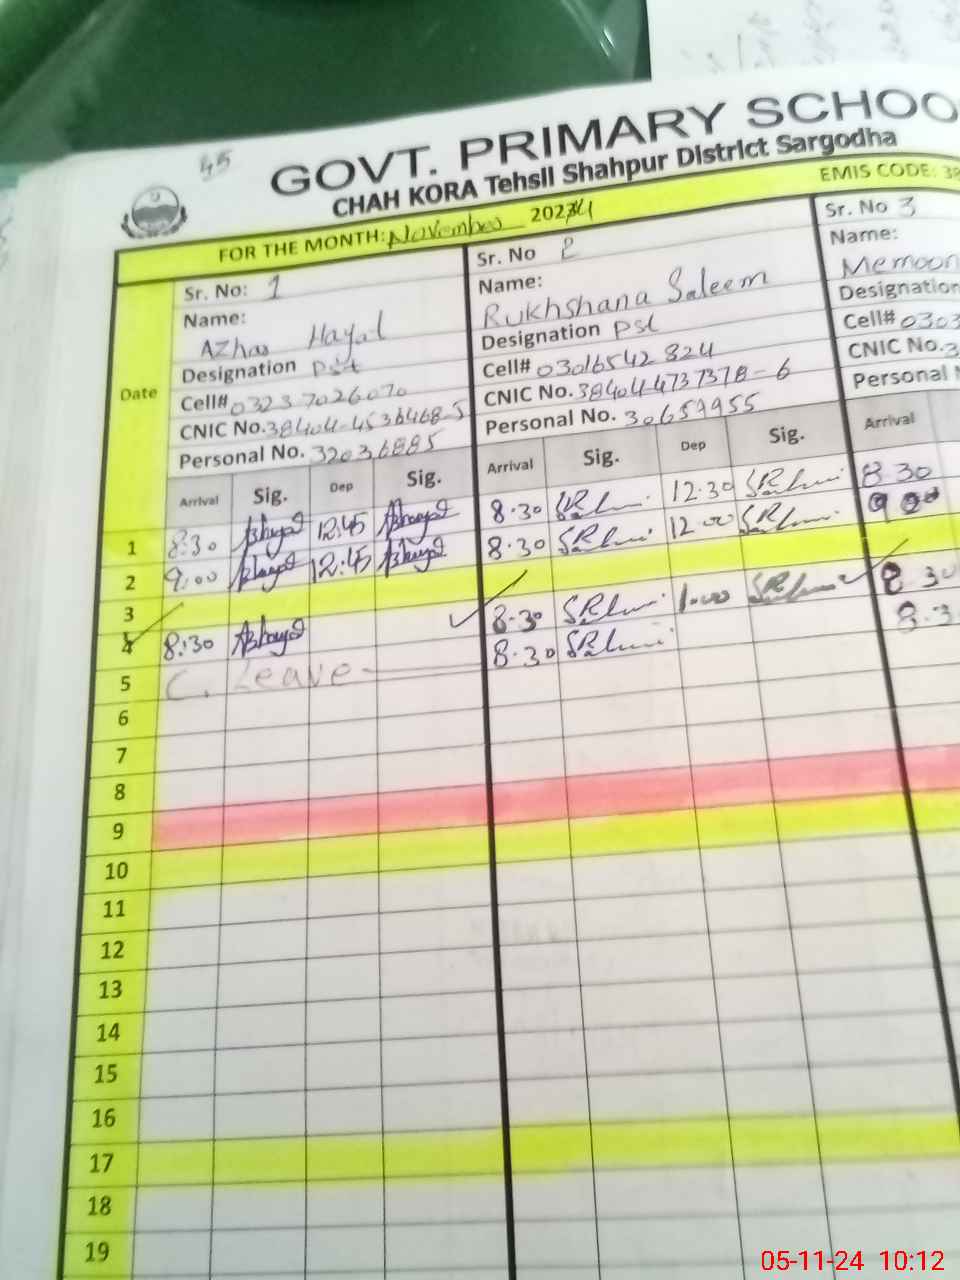 45
GOVT. PRIMARY SCHOO
CHAH KORA Tehsil Shahpur District Sargodha
EMIS CODE: 38
FOR THE MONTH: November 2024
Sr. No: 1
Name:
Azhar Hayat
Designation Pst
Cell# 03237026070
CNIC No. 38404-4536468-5
Personal No. 32036885
Sr. No 2
Name:
Rukhshana Saleem
Designation Pst
Cell# 03016542824
CNIC No. 384044737378-6
Personal No. 30659955
Sr. No 3
Name:
Memoon
Designation
Cell# 0303
CNIC No. 3
Personal N
Date
Arrival Sig. Dep Sig. Arrival Sig. Dep Sig. Arrival
1 8:30 12:45 8.30 12.30 8.30
2 9:00 12:45 8.30 12.00 9 00
3
4 8:30 8.30 1.00 8 30
5 C. Leave 8.30 8.3
6
7
8
9
10
11
12
13
14
15
16
17
18
19
05-11-24 10:12